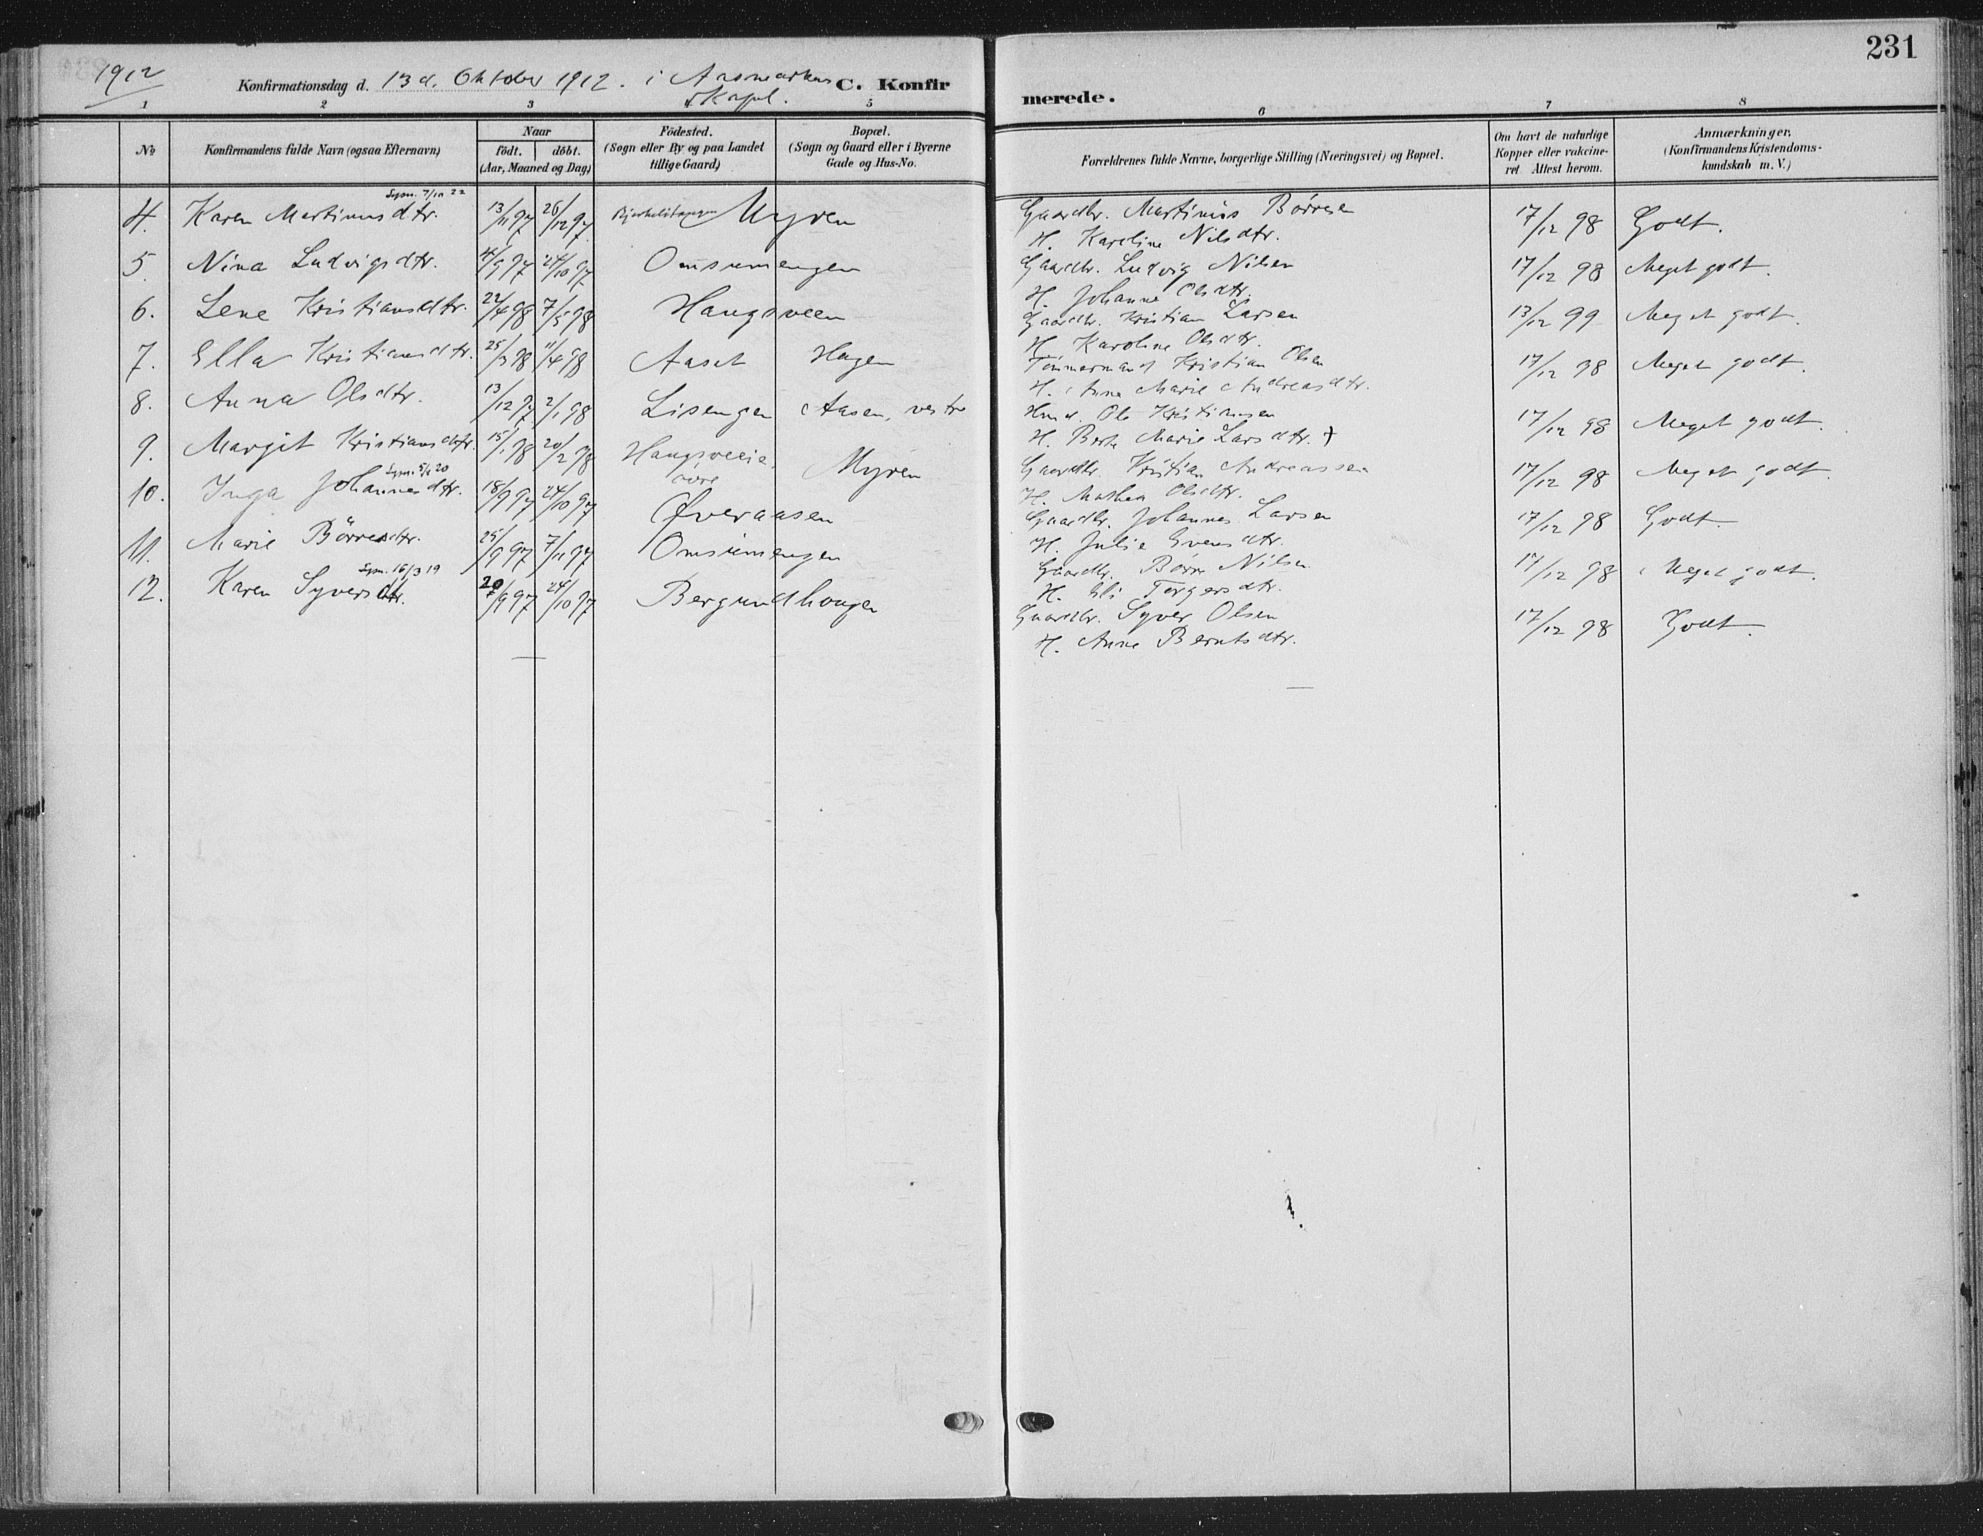 231
1912
Konfirmationsdag d. 13 d. Oktober 1912. i Aasmarkens Kapel.
C. Konfirmerede.
1 2 3 4 5 6 7 8
No
Konfirmandens fulde Navn (ogsaa Efternavn)
Naar
födt. döbt.
(Aar, Maaned og Dag)
Födested.
(Sogn eller By og paa Landet tillige Gaard)
Bopæl.
(Sogn og Gaard eller i Byerne Gade og Hus-No.
Forældrenes fulde Navne, borgerlige Stilling (Næringsvei) og Bopæl.
Om havt de naturlige Kopper eller vakcineret. Attest herom.
Anmærkninger.
(Konfirmandens Kristendomskundskab m. V.)
4. Karen Martinusdtr. 13/11 97 26/12 97 Myren Gaardbr. Martinus Børresen 17/12 98 Godt.
H. Karoline Nilsdtr.
5. Nina Ludvigsdtr. 4/9 97 24/10 97 Omsrudengen Gaardbr. Ludvig Nilsen 17/12 98 Meget godt.
H. Johanne Olsdtr.
6. Lene Kristiansdtr. 22/4 98 7/5 98 Haugsveen Gaardbr. Kristian Larsen 13/12 99 Meget godt.
H. Karoline Olsdtr.
7. Ella Kristiansdtr. 25/3 98 11/4 98 Aaset Hagen Tømmermand Kristian Olsen 17/12 98 Meget godt.
H. Anne Marie Andreasdtr.
8. Anna Olsdtr. 13/12 97 2/1 98 Lisengen Aasen, vestre Hmd. Ole Kristiansen 17/12 98 Meget godt.
H. Berte Marie Larsdtr. +
9. Margit Kristiansdtr. 15/1 98 20/2 98 Myren Gaardbr. Kristian Andreassen 17/12 98 Meget godt.
H. Mathea Olsdtr.
10. Inga Johannesdtr. 18/9 97 24/10 97 Øveraasen Gaardbr. Johannes Larsen 17/12 98 Godt.
H. Julie Evensdtr.
11. Marie Børresdtr. 25/9 97 7/11 97 Omsrudengen Gaardbr. Børre Nilsen 17/12 98 Meget godt.
H. Eli Torgersdtr.
12. Karen Syversdtr. 20/9 97 24/10 97 Bergundhaugen Gaardbr. Syver Olsen 17/12 98 Godt.
H. Anne Berntsdtr.